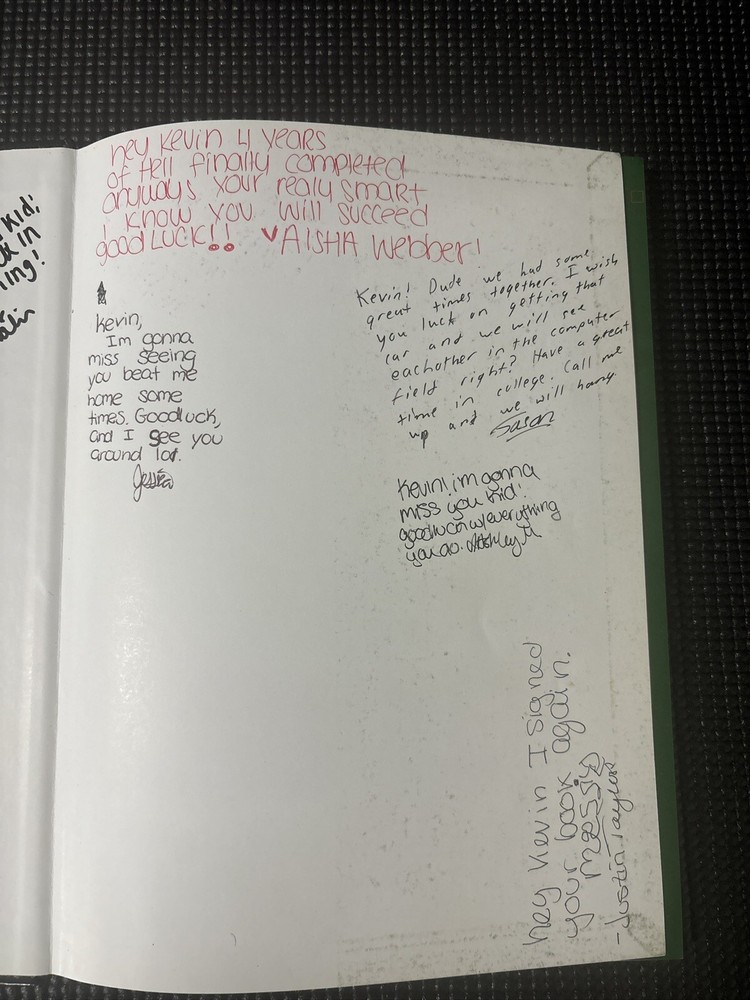 Kid!
in
ing!
hey Kevin 4 years
of Hell finally completed
anyways your realy smart
I know you will succeed
good LUCK!! ♥AISHA Webber!
Kevin! Dude we had some
great times together. I wish
you luck on getting that
car and we will see
eachother in the computer
field right? Have a great
time in college. Call me
up and we will hang
Jason
Kevin,
Im gonna
miss seeing
you beat me
home some
times. Goodluck,
and I see you
around lot.
Jessica
Kevin! im gonna
miss you kid!
goodluck w/everything
you do. Ashley M
hey Kevin I signed
your book again.
-Justin Taylor